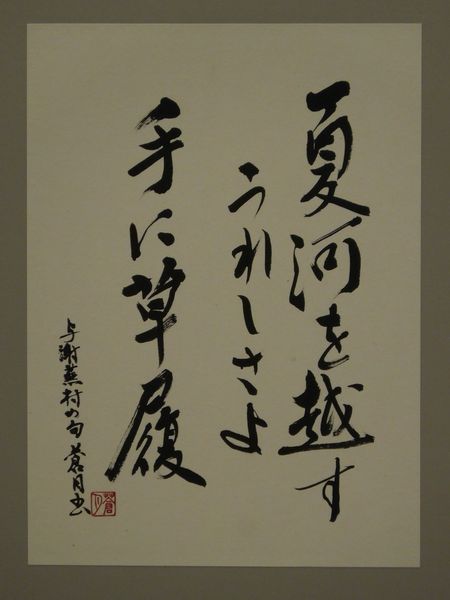 夏河を越す
うれしさよ
手に草履
与謝蕪村の句 蒼月书